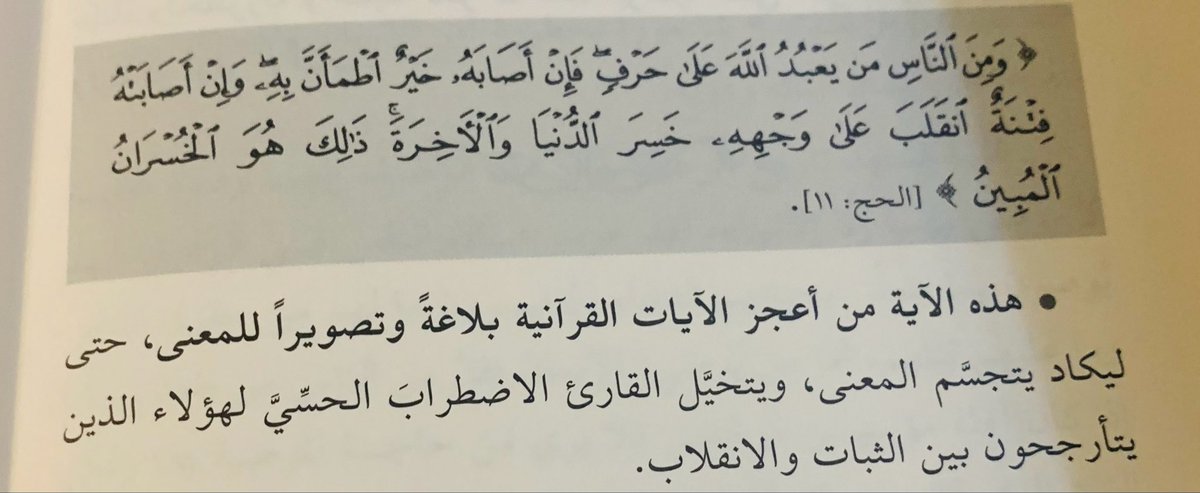 ﴿ وَمِنَ ٱلنَّاسِ مَن يَعۡبُدُ ٱللَّهَ عَلَىٰ حَرۡفٖۖ فَإِنۡ أَصَابَهُۥ خَيۡرٌ ٱطۡمَأَنَّ بِهِۦۖ وَإِنۡ أَصَابَتۡهُ
فِتۡنَةٌ ٱنقَلَبَ عَلَىٰ وَجۡهِهِۦ خَسِرَ ٱلدُّنۡيَا وَٱلۡأٓخِرَةَۚ ذَٰلِكَ هُوَ ٱلۡخُسۡرَانُ
ٱلۡمُبِينُ ﴾ [الحج: ١١].
• هذه الآية من أعجز الآيات القرآنية بلاغةً وتصويراً للمعنى، حتى
ليكاد يتجسَّم المعنى، ويتخيَّل القارئ الاضطرابَ الحسِّيَّ لهؤلاء الذين
يتأرجحون بين الثبات والانقلاب.